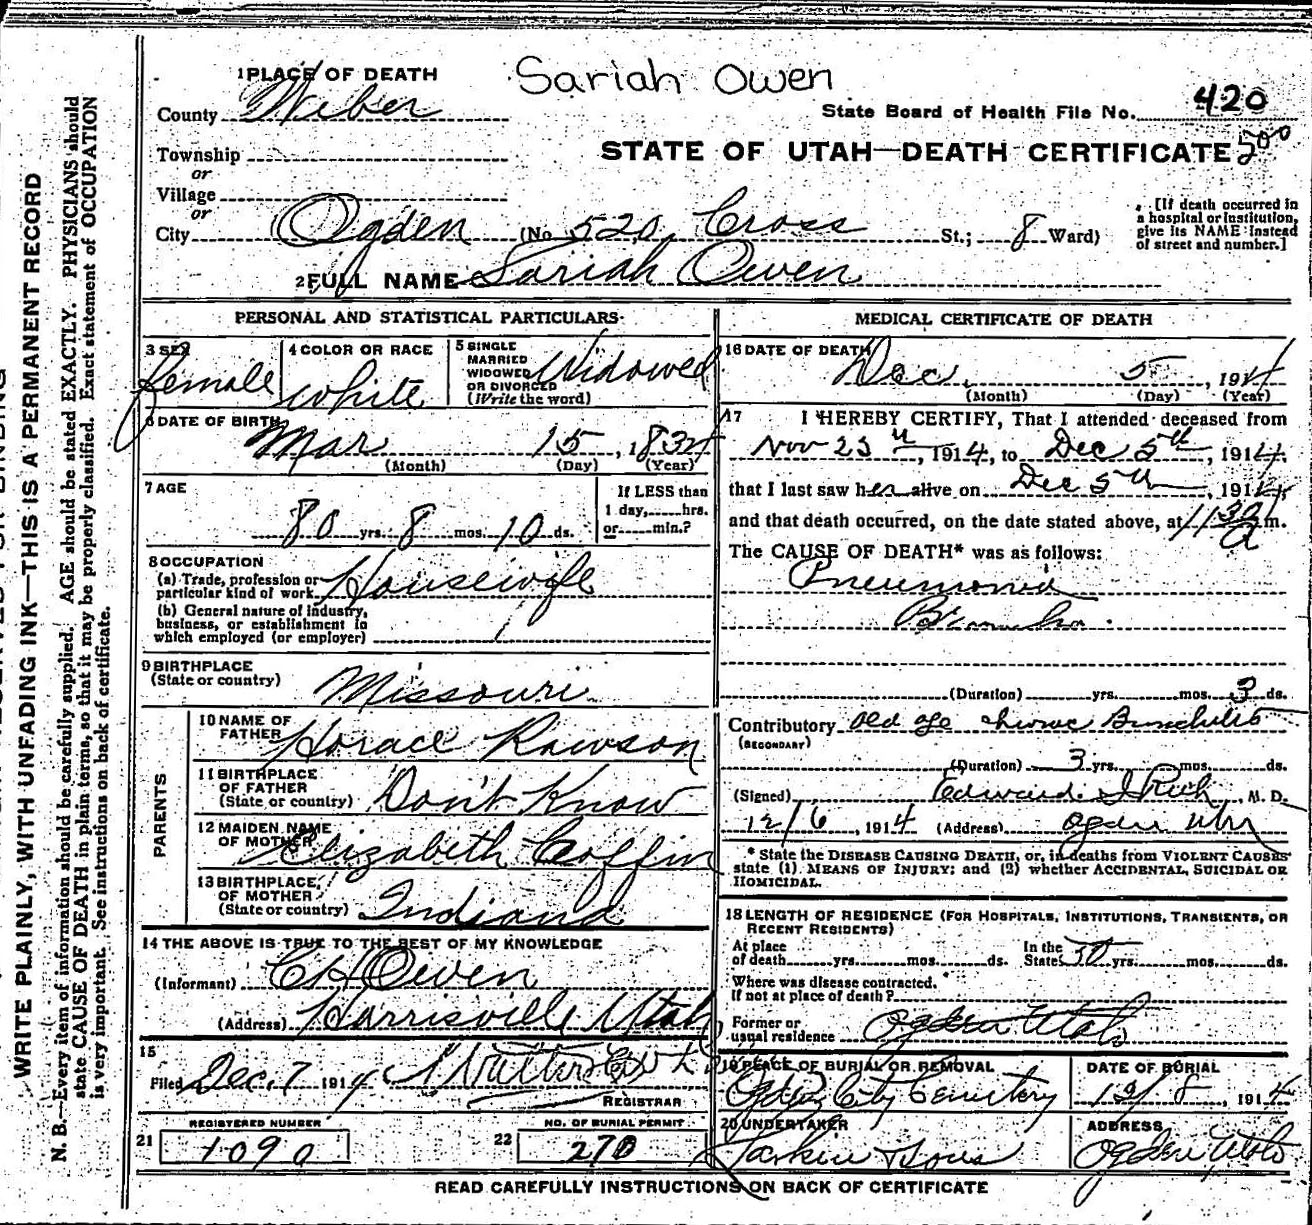 Sariah Owen
1 PLACE OF DEATH
County Weber
State Board of Health File No. 420
Township
or
STATE OF UTAH—DEATH CERTIFICATE 500
Village
or
City Ogden (No 520 Cross St.; 8 Ward)
[If death occurred in a hospital or institution, give its NAME instead of street and number.]
2 FULL NAME Sariah Owen
PERSONAL AND STATISTICAL PARTICULARS
3 SEX female
4 COLOR OR RACE white
5 SINGLE
MARRIED
WIDOWED
OR DIVORCED
(Write the word) Widowed
6 DATE OF BIRTH Mar 15, 1834
(Month) (Day) (Year)
7 AGE
80 yrs. 8 mos. 10 ds.
If LESS than
1 day, hrs.
or min.?
8 OCCUPATION
(a) Trade, profession or
particular kind of work Housewife
(b) General nature of industry,
business, or establishment in
which employed (or employer)
9 BIRTHPLACE
(State or country) Missouri
PARENTS
10 NAME OF
FATHER Horace Rawson
11 BIRTHPLACE
OF FATHER
(State or country) Don't Know
12 MAIDEN NAME
OF MOTHER Elizabeth Coffin
13 BIRTHPLACE
OF MOTHER
(State or country) Indiana
14 THE ABOVE IS TRUE TO THE BEST OF MY KNOWLEDGE
(Informant) C H Owen
(Address) Harrisville Utah
15
Filed Dec. 7 1914
REGISTRAR
REGISTERED NUMBER
21 1090
NO. OF BURIAL PERMIT
22 270
MEDICAL CERTIFICATE OF DEATH
16 DATE OF DEATH Dec. 5, 1914
(Month) (Day) (Year)
17 I HEREBY CERTIFY, That I attended deceased from
Nov 1914, to Dec 5th, 1914,
that I last saw her alive on Dec 5th, 1914,
and that death occurred, on the date stated above, at 11 30 a m.
The CAUSE OF DEATH* was as follows:
Pneumonia
(Duration) yrs. mos. 3 ds.
Contributory old age
(SECONDARY)
(Duration) 3 yrs. mos. ds.
(Signed) Edward I Rich, M. D.
12/6, 1914 (Address) Ogden Utah
* State the DISEASE CAUSING DEATH, or, in deaths from VIOLENT CAUSES
state (1) MEANS OF INJURY; and (2) whether ACCIDENTAL, SUICIDAL OR
HOMICIDAL.
18 LENGTH OF RESIDENCE (FOR HOSPITALS, INSTITUTIONS, TRANSIENTS, OR
RECENT RESIDENTS)
At place
of death yrs. mos. ds.
In the
State 50 yrs. mos. ds.
Where was disease contracted.
If not at place of death?
Former or
usual residence Ogden Utah
19 PLACE OF BURIAL OR REMOVAL
Ogden City Cemetery
DATE OF BURIAL
12/8, 1914
20 UNDERTAKER
Larkin & Sons
ADDRESS
Ogden Utah
READ CAREFULLY INSTRUCTIONS ON BACK OF CERTIFICATE
WRITE PLAINLY, WITH UNFADING INK—THIS IS A PERMANENT RECORD
N. B.—Every item of information should be carefully supplied. AGE should be stated EXACTLY. PHYSICIANS should
state CAUSE OF DEATH in plain terms, so that it may be properly classified. Exact statement of OCCUPATION
is very important. See instructions on back of certificate.